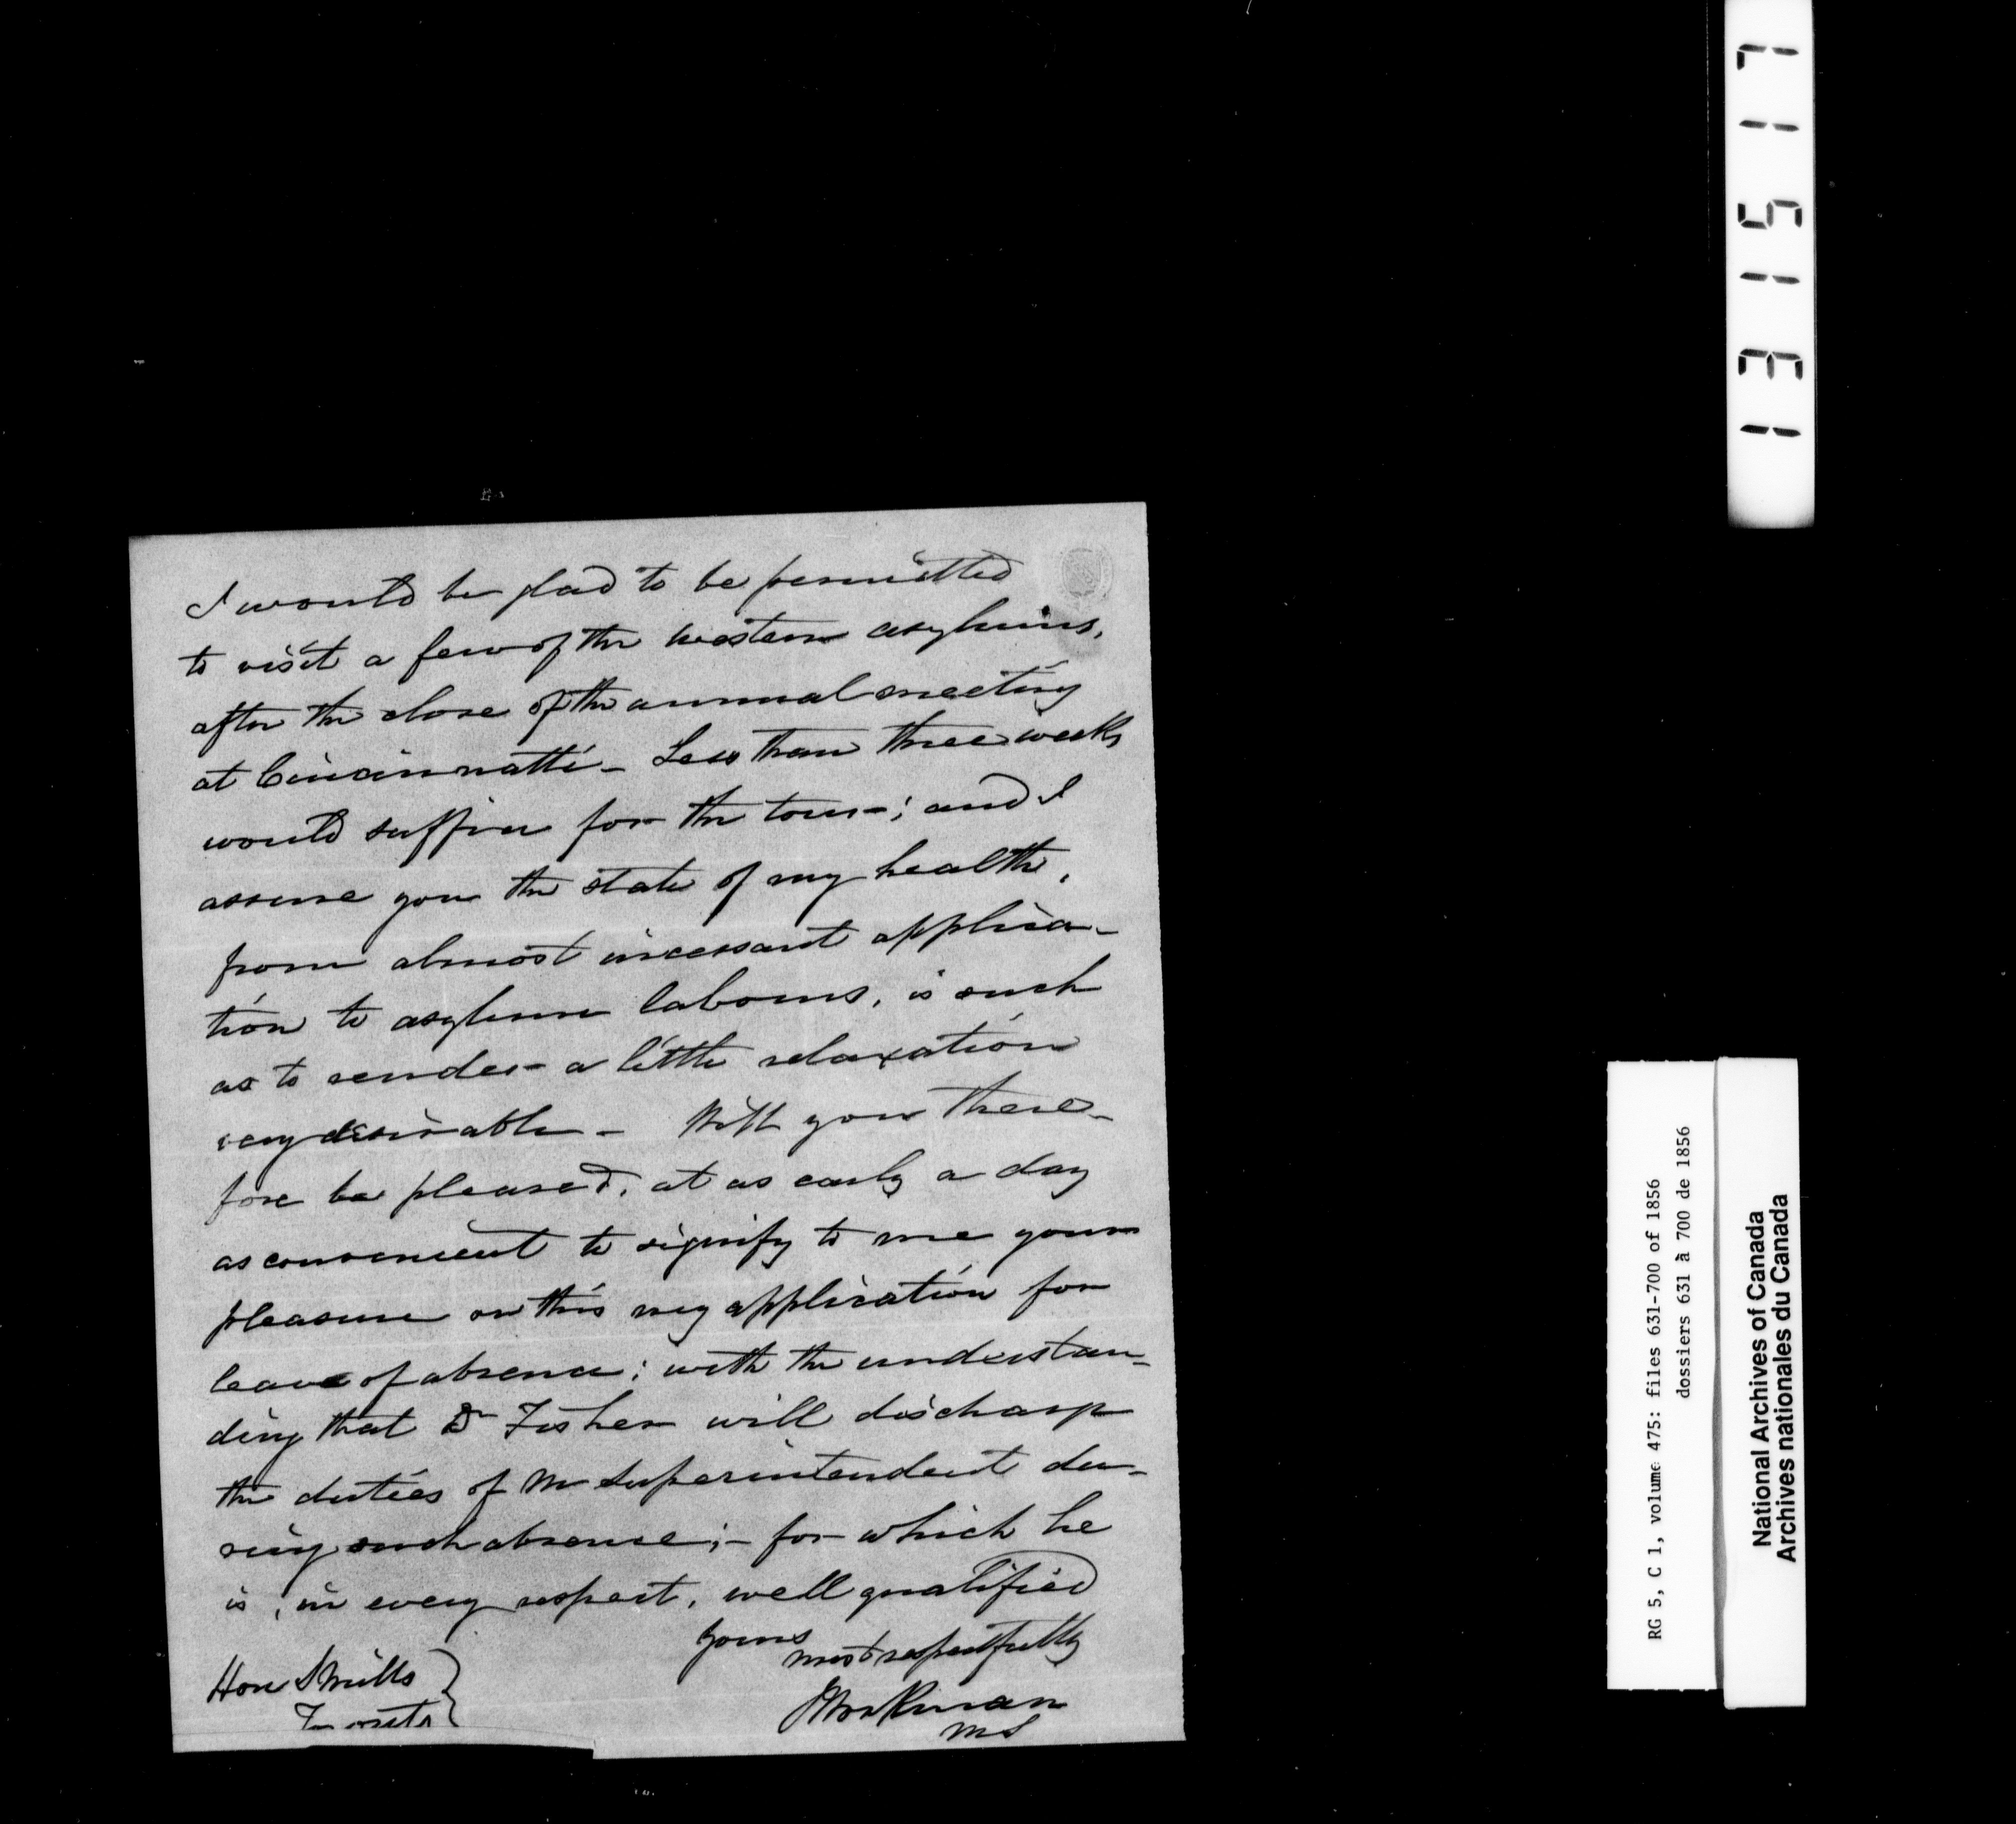 I would be glad to be permitted
to visit a few of the western asylums,
after the close of the annual meeting
at Cincinnatti – Less than three weeks
would suffice for the tour –; and I
assure you the state of my health,
from almost incessant applica-
tion to asylum labours, is such
as to render a little relaxation
very desirable – Will you there-
fore be pleased, at as early a day
as convenient to signify to me your
pleasure on this my application for
leave of absence; with the understan-
ding that Dr Fisher will discharge
the duties of M Superintendent du-
ring such absence; – for which he
is, in every respect, well qualified
Yours
most respectfully
J Workman
MS
Hon S Mills
Toronto
131517
RG 5, C 1, volume 475: files 631-700 of 1856
dossiers 631 à 700 de 1856
National Archives of Canada
Archives nationales du Canada